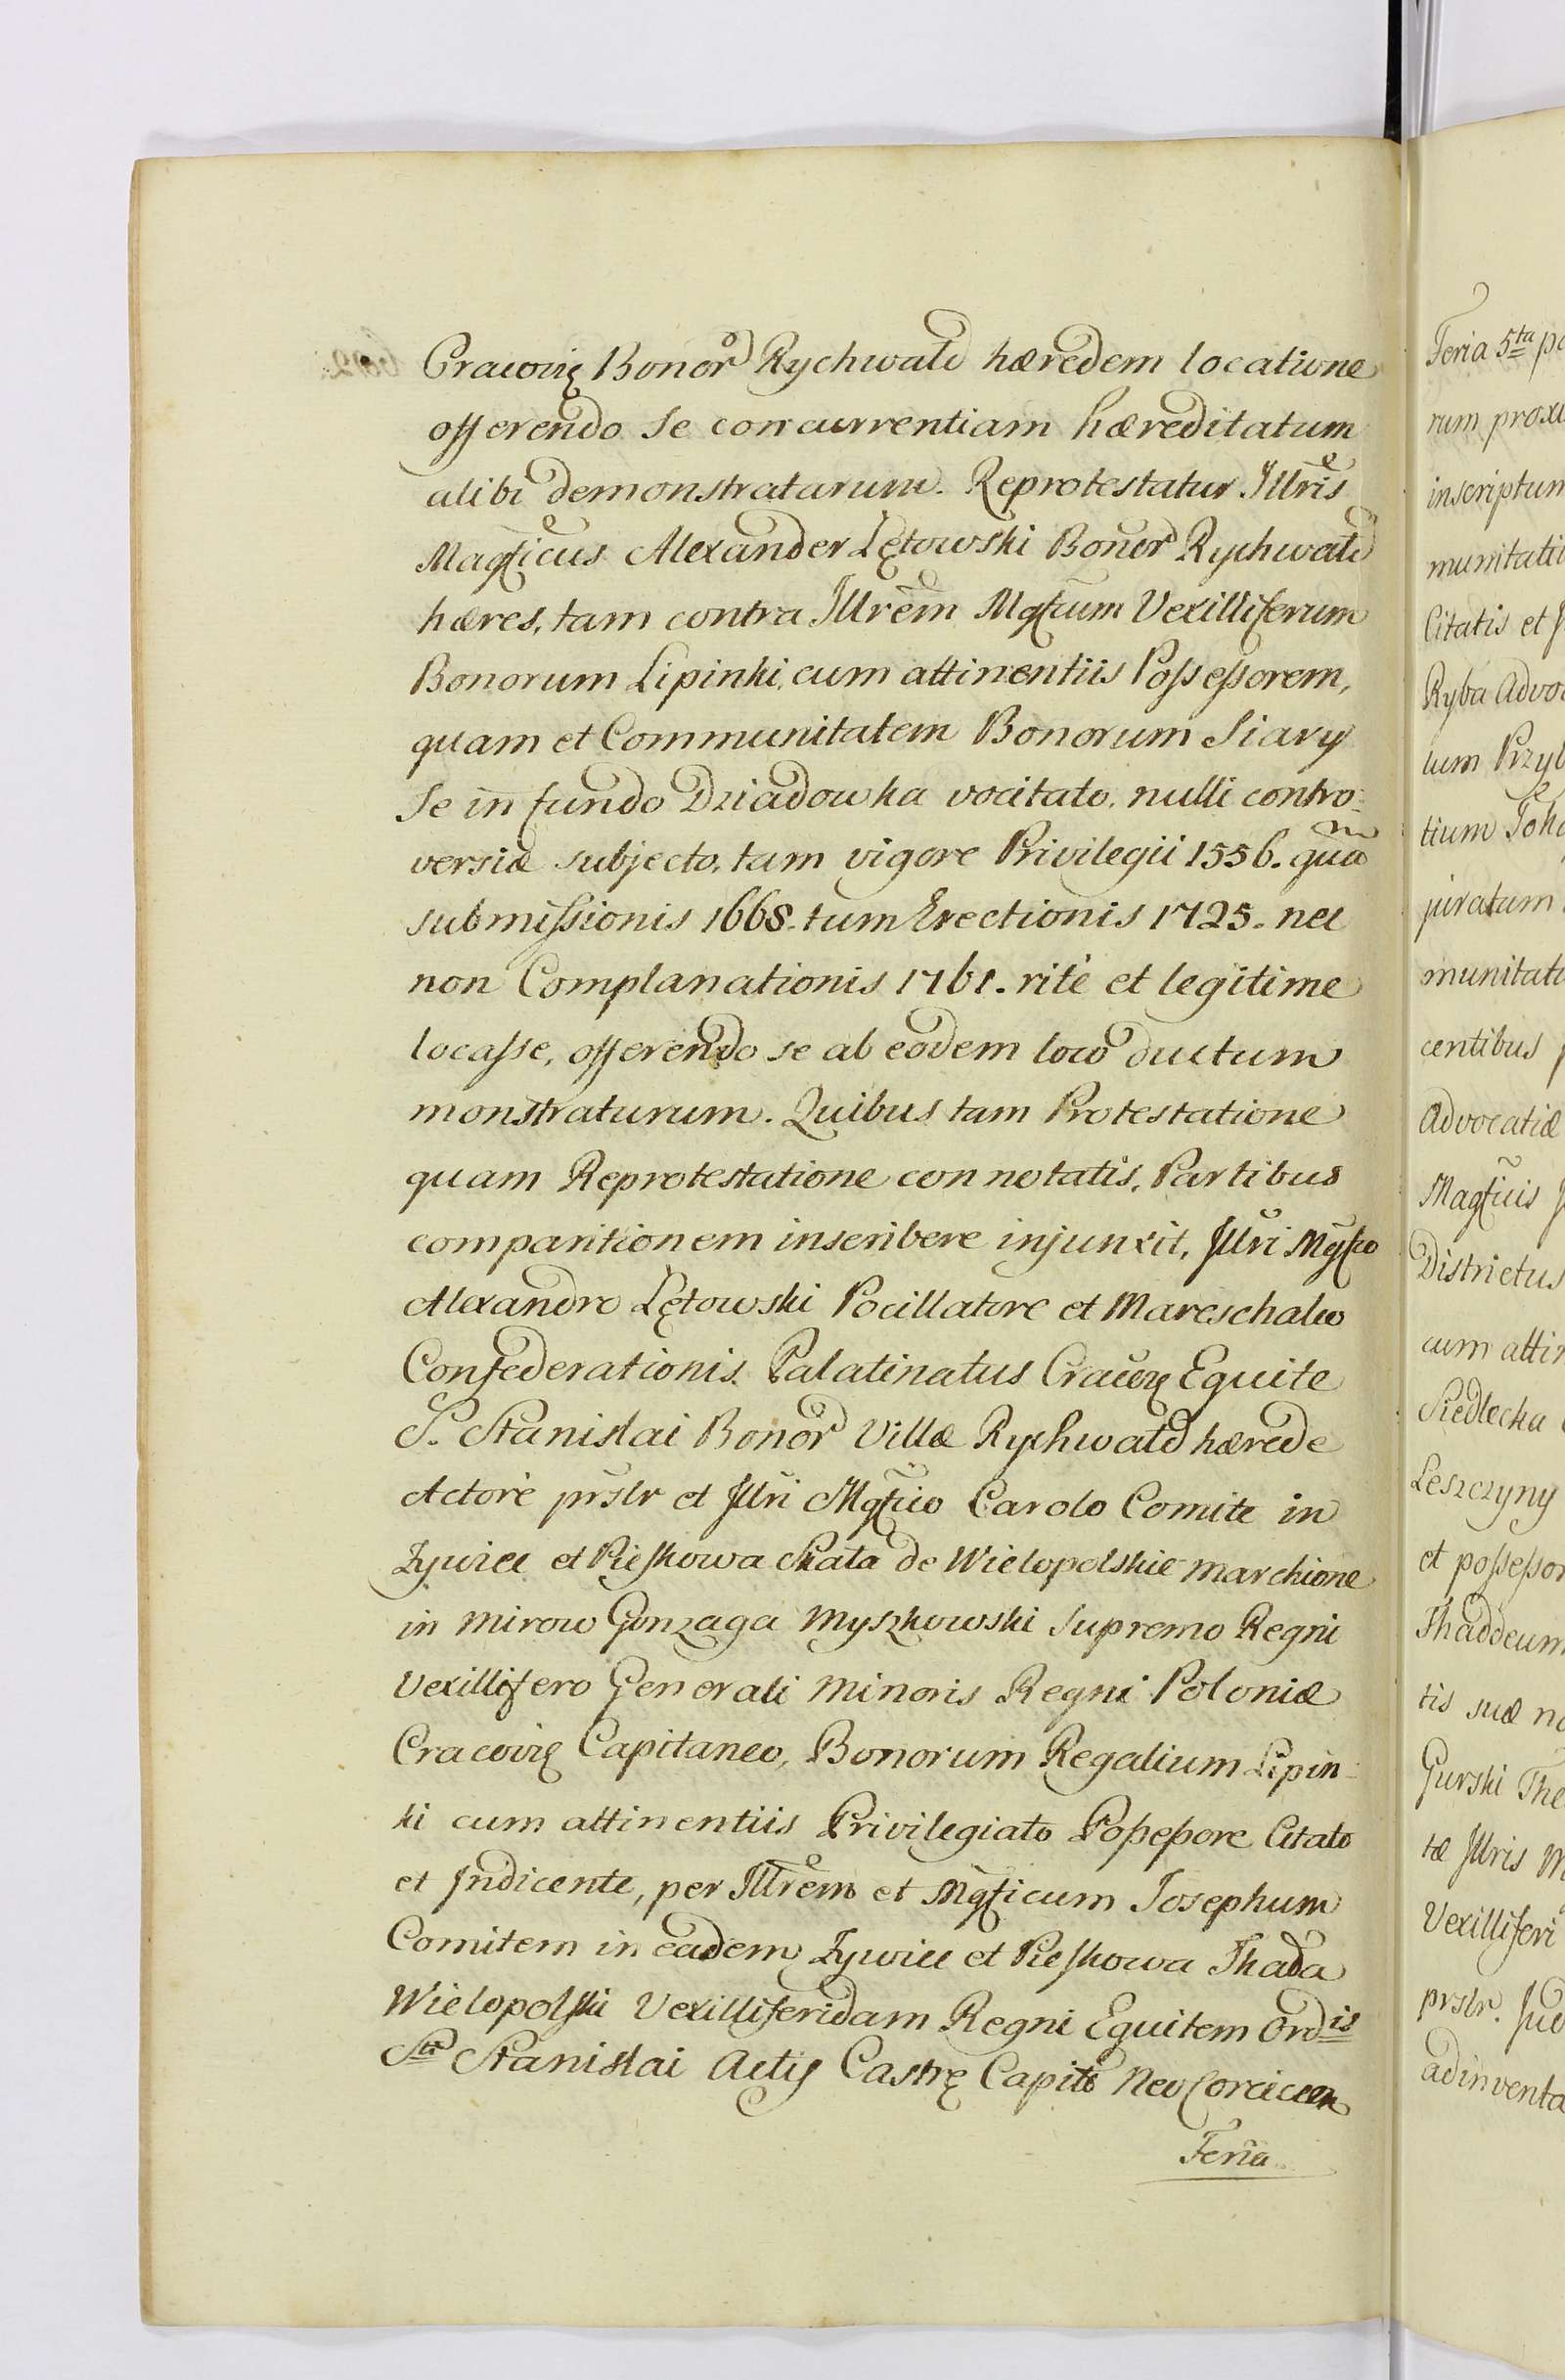 Cracovię Bonor̃ Rychwałd hæredem locatione
offerendo se concurrentiam hæreditatum
alibi demonstratarum. Reprotestatur Illris
Magficus Alexander Łętowski Bonor̃ Rychwałd
hæres, tam contra Illrem Mgfcum Vexilliferum
Bonorum Lipinki, cum attinentiis Possessorem,
quam et Communitatem Bonorum Siary
se in fundo Dziadowka vocitato, nulli contro:
versiæ subjecto, tam vigore Privilegii 1556. quã
submissionis 1668. tum Erectionis 1725. nec
non Complanationis 1761. ritè et legitime
locasse, offerendo se ab eodem loco ductum
monstraturum. Quibus tam Protestatione
quam Reprotestatione connotatis, Partibus
comparitionem inscribere injunxit, Illri Mgfco
Alexandro Łętowski Pocillatore et Mareschalco
Confederationis Palatinatus Cracovię Equite
S. Stanislai Bonor̃ Villæ Rychwałd hærede
Actore prslr et Illri Mgfico Carolo Comite in
Zywiec et Pieskowa Skała de Wielopolskie Marchione
in Mirow Gonzaga Myszkowski Supremo Regni
Vexillifero Generali Minoris Regni Poloniæ
Cracovię Capitaneo, Bonorum Regalium Lipin:
ki cum attinentiis Privilegiato Possessore Citato
et Indicente, per Illrem et Mgficum Josephum
Comitem in eadem Zywiec et Pieskowa Skała
Wielopolski Vexilliferidam Regni Equitem Ordis
Sti Stanislai Actis Castrę Capit̃ Neo Corcicen
Feria
Feria 5ta
rum
inscriptum
Citatis et
Ryba
tium
juratum
centibus
Advocatiæ
Magficis
Districtus
cum
Siedlecka
Leszczyny
et
Thaddeum
tis suæ
Gurski
tæ Illris
Vexilliferi
prslr.